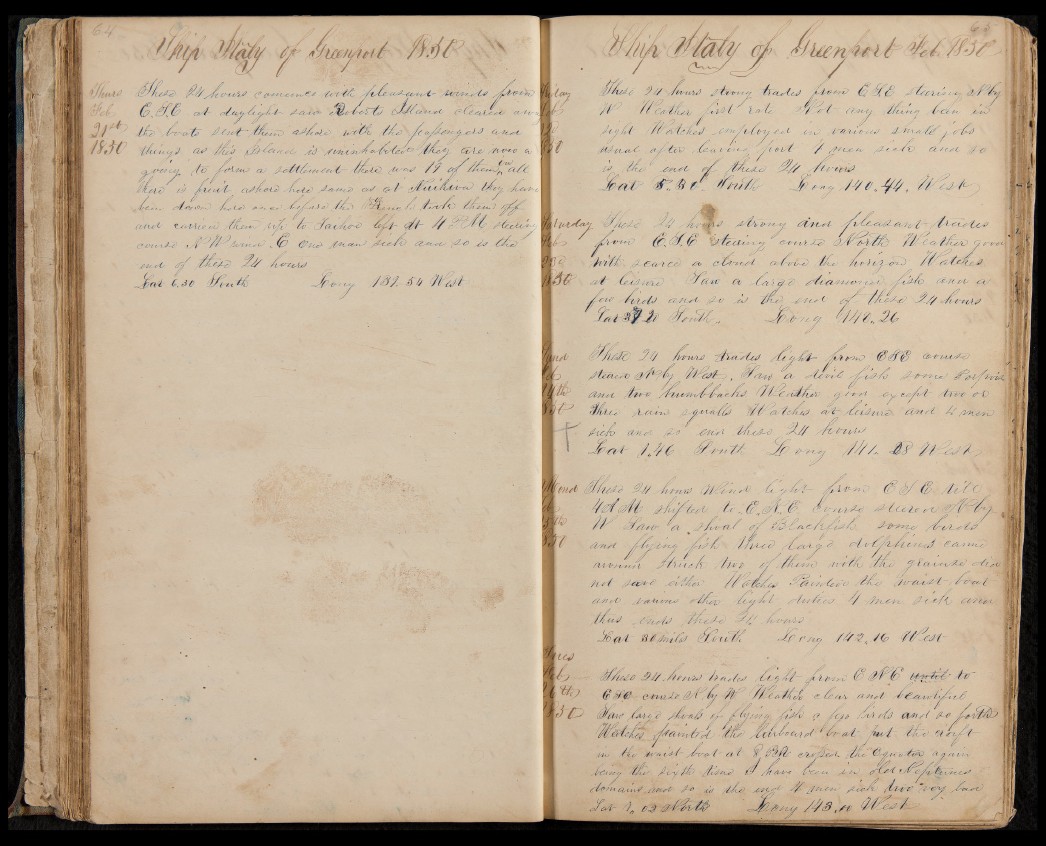 64
Ship Italy of Greenport 1850
Thurs Feb 21st 1850
These 24 hours comences with pleasant winds from
E.S.E at daylight saw Roberts Island cleared away
the boats sent them ashore with the passengers and
things as this Island is uninhabited they are now a
going to form a settlement there was 19 of them in all
there is fruit ashore here same as at they have
been down here once before the French took them off
and carried them up to left at 4 PM steering
course N W some C one man sick and so is the
end of these 24 hours
Lat 6.50 South Long 139.54 West
65
Ship Italy of Greenport Feb. 1850
These 24 hours strong trades from E S E steering N by
W Weather first rate Not any thing been in
sight Watches employed in various small jobs
usual after leaving port 4 men sick and so
is the end of these 24 hours
Lat South Long 140.44. West
Saturday Feb
These 24 hours strong and pleasant trades
from E.S.E steering course North Weather good
with scarce a cloud above the horizon Watches
at leisure Saw a large diamond fish and a
few birds and so is the end of these 24 hours
Lat South. Long 140.26
24th
These 24 hours trades light from E S E course
steered N by West. Saw a devil fish some Porpoise
and two humbbacks Weather good except two or
three rain squalls Watches at leisure and 4 men
sick and so ends these 24 hours
Lat 1.46 South Long 141. 28 West
Mond
These 24 hours Wind light from E S E till
4 A M shifted to E.N.E. course steered N by
W Saw a shoal of Blackfish some birds
and flying fish three large dolphins came
around struck two of them with the grainse did
not save either Watches Painted the waist boat
and various other light duties 4 men sick and
thus ends these 24 hours
Lat 30 miles South Long 142.16 West
Tues Feb 26th 1850
These 24 hours trades light from E N E until to
E S E course N by W Weather clear and beautiful
Saw large shoals of flying fish & few birds and so forth
Watches painted the larboard boat put the craft
in the waist boat at crossed the Equator again
being the sixth time I have been in old Neptunes
domains and so is the end 4 men sick two very bad
Lat 1.03 North Long 143.00 West